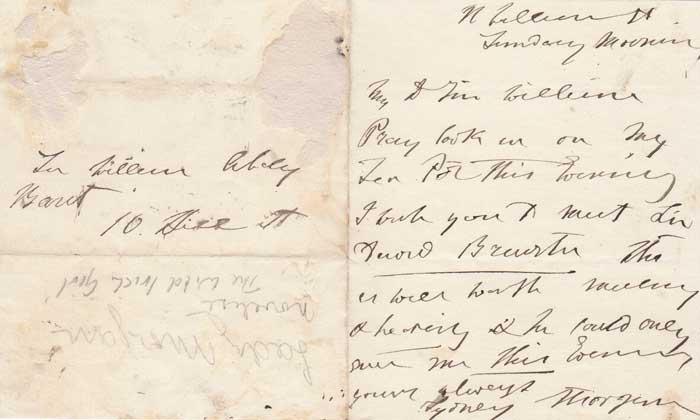 Sir William Abdy
Bart
10. Hill St
Lady Morgan
Novelist
The Wild Irish Girl
11 William St
Sunday Mornin
My D Sir William
Pray look in on my
Tea Pot this Evening
I wish you to meet Sir
David Brewster
is well worth meeting
& hearing & he could only
give me this Evening
yours always
Sydney Morgan